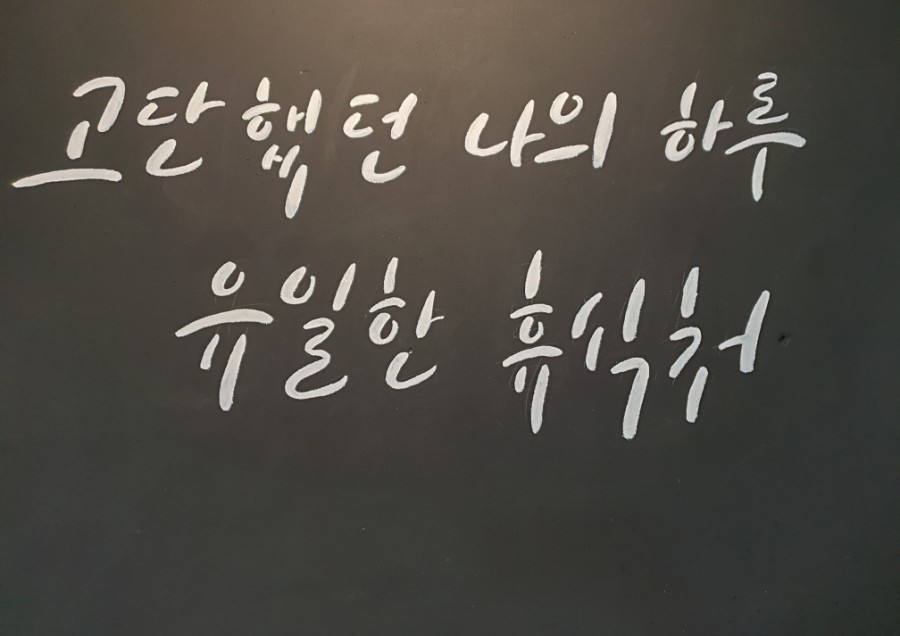 고단했던 나의 하루
유일한 휴식처